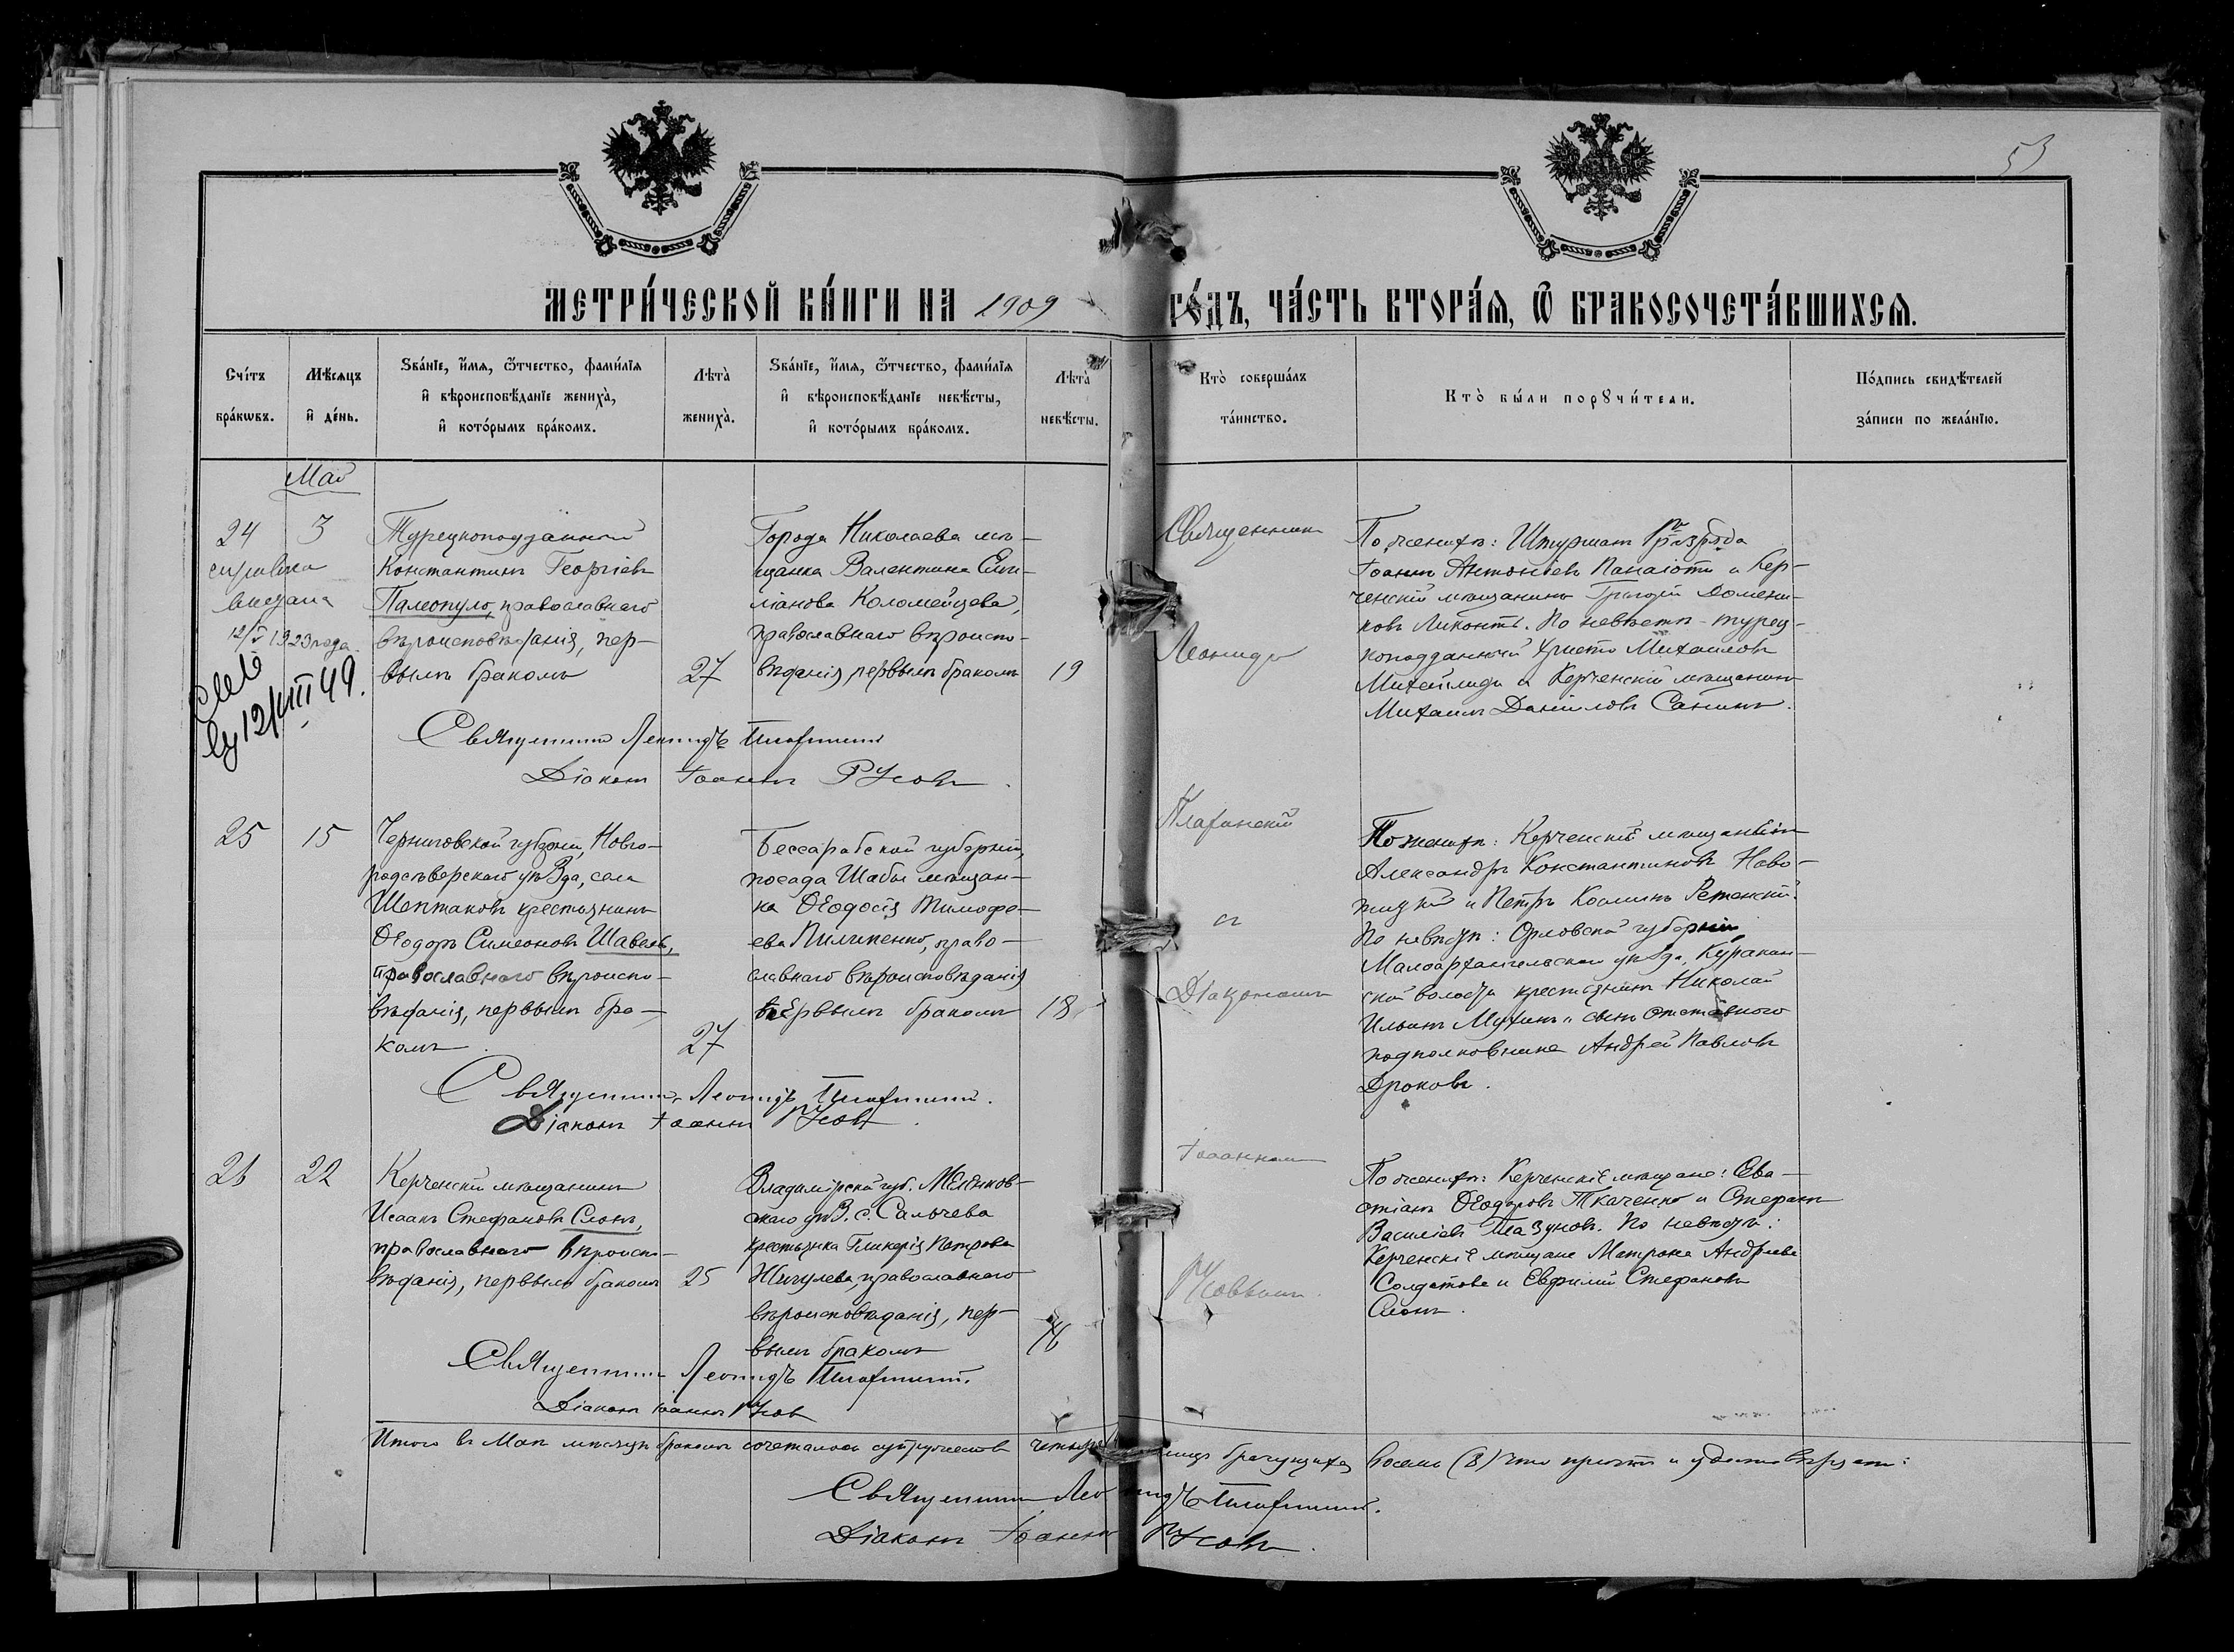 53
МЕТРИ́ЧЕСКОЙ КНИ́ГИ НА 1909 ГО́ДЪ, ЧА́СТЬ ВТОРА́Я, Ѽ БРАКОСОЧЕТА́ВШИХСЯ.
Сче́тъ бра́кѡвъ.
Мѣ́сяцъ и҆ де́нь.
Ѕва́нїе, и҆́мя, ѻ҆́тчество, фами́лїя
и҆ вѣроисповѣ́данїе жениха̀,
и҆ кото́рымъ бра́комъ.
Лѣта̀ жениха̀.
Ѕва́нїе, и҆́мя, ѻ҆́тчество, фами́лїя
и҆ вѣроисповѣ́данїе невѣ́сты,
и҆ кото́рымъ бра́комъ.
Лѣта̀ невѣ́сты.
Кто̀ соверша́лъ та́инство.
Кто̀ бы́ли порꙋчи́тели.
По́дпись свидѣ́телей
за́писи по жела́нїю.
Май
24 3
справка
выдана
12/V 1923 года.
12/VIII 49.
Турецкоподданный
Константинъ Георгіевъ
Палеопуло, православнаго
вѣроисповѣданія, пер-
вымъ бракомъ
27
Города Николаева мѣ-
щанка Валентина Еми-
ліанова Коломейцева,
православнаго вѣроиспо-
вѣданія, первымъ бракомъ
19
Священникъ
Леонидъ
По женихѣ: Штурманъ разряда
Іоаннъ Антоніевъ Панаіоти и Кер-
ченскій мѣщанинъ Григорій Домени-
ковъ Ликонти. По невѣстѣ - турец-
коподданный Христо Михаиловъ
Михаилиди и Керченскій мѣщанинъ
Михаилъ Даниловъ Санинъ.
Священникъ Леонидъ Плафинскій
Діаконъ Іоаннъ Русовъ.
25 15
Черниговской губерніи, Новго-
родсѣверскаго уѣзда, села
Шептаковъ крестьянинъ
Ѳеодоръ Симеоновъ Шавель,
православнаго вѣроиспо-
вѣданія, первымъ бра-
комъ
27
Бессарабской губерніи,
посада Шабы мѣщан-
ка Ѳеодосія Тимофе-
ева Пилипенко, право-
славнаго вѣроисповѣданія
первымъ бракомъ
18
Плафинскій
съ
Діакономъ
По женихѣ: Керченскій мѣщанинъ
Александръ Константиновъ Ново-
жицкій и Петръ Косминъ Ретенскій.
По невѣстѣ: Орловской губерніи,
Малоархангельскаго уѣзда, Куракин-
ской волости крестьянинъ Николай
Ильинъ Мухинъ и сынъ отставного
подполковника Андрей Павловъ
Дроковъ.
Священникъ Леонидъ Плафинскій.
Діаконъ Іоаннъ Русовъ.
26 22
Керченскій мѣщанинъ
Исаакъ Стефановъ Слонь,
православнаго вѣроиспо-
вѣданія, первымъ бракомъ
25
Владимірской губ. Меленков-
скаго уѣз. с. Сальчева
крестьянка Гликерія Петрова
Жигулева, православнаго
вѣроисповѣданія, пер-
вымъ бракомъ
Іоанномъ
Русовымъ.
По женихѣ: Керченскіе мѣщане: Сева-
стіанъ Ѳеодоровъ Ткаченко и Стефанъ
Василіевъ Глазуновъ. По невѣстѣ:
Керченскіе мѣщане Матрона Андреева
Солдатова и Евфимій Стефановъ
Слонь.
Священникъ Леонидъ Плафинскій.
Діаконъ Іоаннъ Русовъ
Итого въ Маѣ мѣсяцѣ бракомъ сочеталось супружествъ четыре лицъ брачущихся восемь (8) что и удостовѣряемъ:
Священникъ Леонидъ Плафинскій.
Діаконъ Іоаннъ Русовъ.